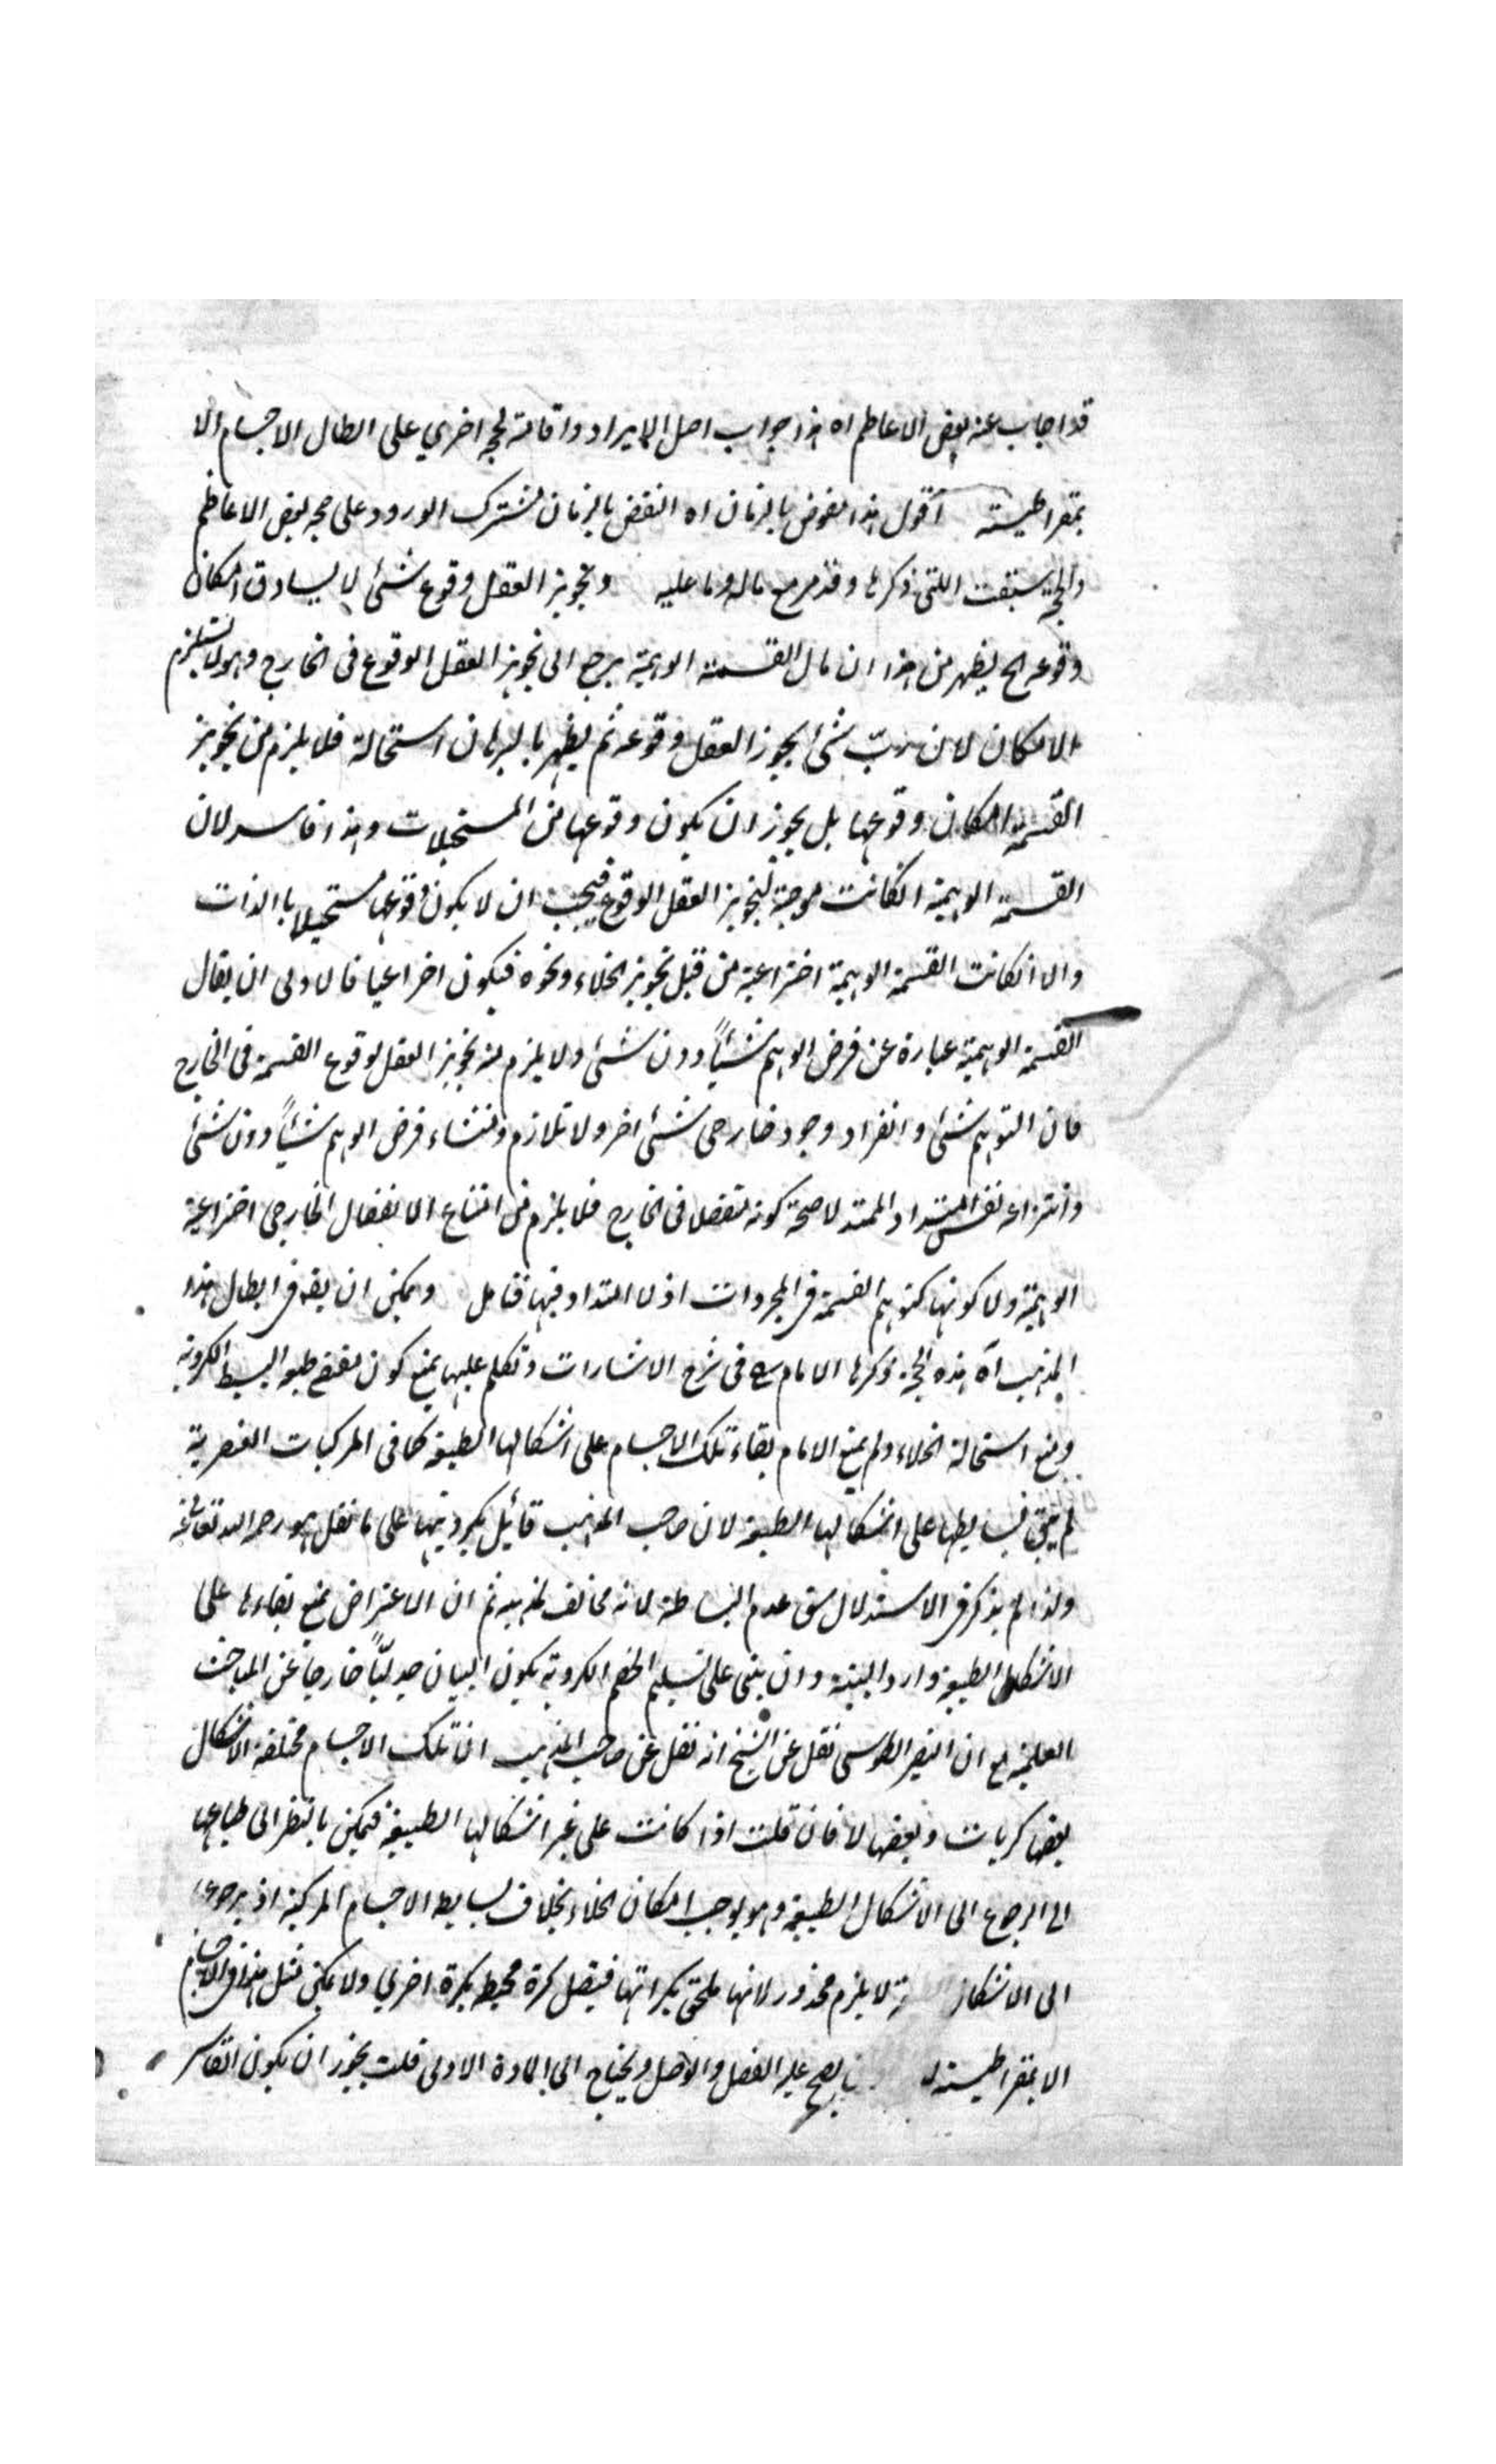 قد اجاب عنه بعض الاعاظم اه هذا جواب اصل الايراد واقامة لحجة اخري على ابطال الاجسام الا
يمقراطيسية اقول هذا منقوض بالزمان اه النقض بالزمان مشترك الورود على حجة بعض الاعاظم
والحجة سبقت اللتى ذكرها وقد مر مع ماله وما عليه وتجويز العقل وقوع شئ لا يساوق امكان
وقوعه الخ يظهر من هذا ان مال القسمة الوهمية يرجع الى تجويز العقل الوقوع فى الخارج وهو لا يستلزم
الامكان لان ربّ شئ يجوز العقل وقوعه ثم يظهر بالبرهان استحالة فلا يلزم من تجويز
القسمة امكان وقوعها بل يجوز ان يكون وقوعها من المستحيلات وهذا فاسد لان
القسمة الوهمية انكانت موجبة لتجويز العقل الوقوع فيجب ان لا يكون وقوعها مستحيلا باالذات
والا انكانت القسمة الوهمية اختراعية من قبل تجويز الخلاء ونحوه فيكون اختراعيا فالاولى ان يقال
القسمة الوهمية عبارة عن فرض الوهم شيئاً دون شئ ولا يلزم منه تجويز العقل لوقوع القسمة فى الخارج
فان التوهم شئ وانفراد وجود خارجى شئ اخر ولا تلازم ومنشاء فرض الوهم شيئاً دون شئ
وانتزاعه نفس امتداد الممتد لا صحة كونه منفصلا فى الخارج فلا يلزم من امتناع الانفصال الخارجى اختراعية
الوهمية ولا كونها كتوهم القسمة فى المجردات اذ لا امتداد فيها فتامل ويمكن ان يقه فى ابطال هذا
المذهب آه هذه الحجة ذكرها الامام فى شرح الاشارات وتكلم عليها بمنع كون مقتضى طبع البسيط الكروية
ومنع استحالة الخلاء ولم يمنع الامام بقاء تلك الاجسام على اشكالها الطبيعية كما فى المركبات العنصرية
لم يبق بسايطها على اشكالها الطبيعية لان صاحب المذهب قائل بكرويتها على ما نقل هو رحمه الله تعالى عنه
ولذا لم يذكر فى الاستدلال شق عدم البساطة لانه مخالف لمذهبه ثم ان الاعتراض بمنع بقاءها على
الاشكال الطبيعية وارد البتة وان بنى على تسليم الخصم الكروية يكون البيان جدليّاً خارجا عن المباحث
العلمية مع ان النصير الطوسى نقل عن الشيخ انه نقل عن صاحب المذهب ان تلك الاجسام مختلفة الاشكال
بعضها كريات وبعضها لا فان قلت اذا كانت على غير اشكالها الطبيعية فيمكن بالنظر الى طباعها
الى الرجوع الى الاشكال الطبيعية وهو يوجب امكان الخلاء بخلاف بسايط الاجسام المركبة اذ برجوعها
الى الاشكال لا يلزم محذور لانها ملحق بكراتها فيتصل كرة محيط بكرة اخرى ولا يمكن مثل هذا فى الاجسام
الا يمقراطيسية يصح عليه الفصل والوصل ويحتاج الى المادة الاولى قلت يجوز ان يكون القاسر